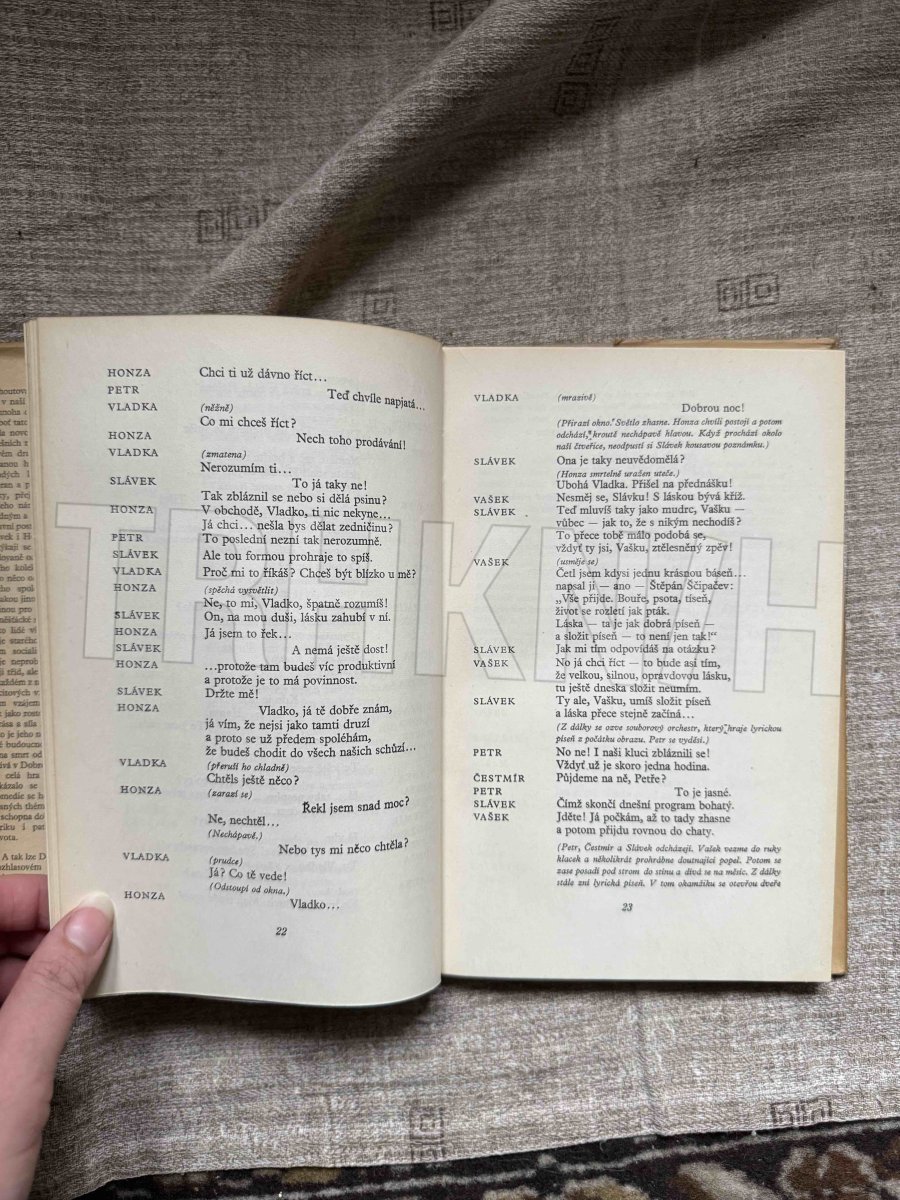 HONZA Chci ti už dávno říct...
PETR Teď chvíle napjatá...
VLADKA (něžně)
Co mi chceš říct?
HONZA Nech toho prodávání!
VLADKA (zmatena)
Nerozumím ti...
SLÁVEK To já taky ne!
Tak zbláznil se nebo si dělá psinu?
HONZA V obchodě, Vladko, ti nic nekyne...
Já chci... nešla bys dělat zedničinu?
PETR To poslední nezní tak nerozumně.
SLÁVEK Ale tou formou prohraje to spíš.
VLADKA Proč mi to říkáš? Chceš být blízko u mě?
HONZA (spěchá vysvětlit)
Ne, to mi, Vladko, špatně rozumíš!
SLÁVEK On, na mou duši, lásku zahubí v ní.
HONZA Já jsem to řek...
SLÁVEK A nemá ještě dost!
HONZA ...protože tam budeš víc produktivní
a protože je to má povinnost.
SLÁVEK Držte mě!
HONZA Vladko, já tě dobře znám,
já vím, že nejsi jako tamti druzí
a proto se už předem spoléhám,
že budeš chodit do všech našich schůzí...
VLADKA (přeruší ho chladně)
Chtěls ještě něco?
HONZA (zarazí se)
Řekl jsem snad moc?
Ne, nechtěl...
(Nechápavě.)
Nebo tys mi něco chtěla?
VLADKA (prudce)
Já? Co tě vede!
(Odstoupí od okna.)
HONZA Vladko...
22
VLADKA (mrazivě)
Dobrou noc!
(Přirazí okno. Světlo zhasne. Honza chvíli postojí a potom
odchází, kroutě nechápavě hlavou. Když prochází okolo
naší čtveřice, neodpustí si Slávek housavou poznámku.)
SLÁVEK Ona je taky neuvědomělá?
(Honza smrtelně uražen uteče.)
Ubohá Vladka. Přišel na přednášku!
VAŠEK Nesměj se, Slávku! S láskou bývá kříž.
SLÁVEK Teď mluvíš taky jako mudrc, Vašku —
vůbec — jak to, že s nikým nechodíš?
To přece tobě málo podobá se,
vždyť ty jsi, Vašku, ztělesněný zpěv!
VAŠEK (usměje se)
Četl jsem kdysi jednu krásnou báseň...
napsal ji — ano — Štěpán Ščipačev:
„Vše přijde. Bouře, psota, tíseň,
život se rozletí jak pták.
Láska — ta je jak dobrá píseň —
a složit píseň — to není jen tak!“
SLÁVEK Jak mi tím odpovídáš na otázku?
VAŠEK No já chci říct — to bude asi tím,
že velkou, silnou, opravdovou lásku,
tu ještě dneska složit neumím.
SLÁVEK Ty ale, Vašku, umíš složit píseň
a láska přece stejně začíná...
(Z dálky se ozve souborový orchestr, který hraje lyrickou
píseň z počátku obrazu. Petr se vyděsí.)
PETR No ne! I naši kluci zbláznili se!
Vždyť už je skoro jedna hodina.
ČESTMÍR Půjdeme na ně, Petře?
PETR To je jasné.
SLÁVEK Čímž skončí dnešní program bohatý.
VAŠEK Jděte! Já počkám, až to tady zhasne
a potom přijdu rovnou do chaty.
(Petr, Čestmír a Slávek odcházejí. Vašek vezme do ruky
klacek a několikrát prohrábne doutnající popel. Potom se
zase posadí pod strom do stínu a dívá se na měsíc. Z dálky
stále zní lyrická píseň. V tom okamžiku se otevřou dveře
23